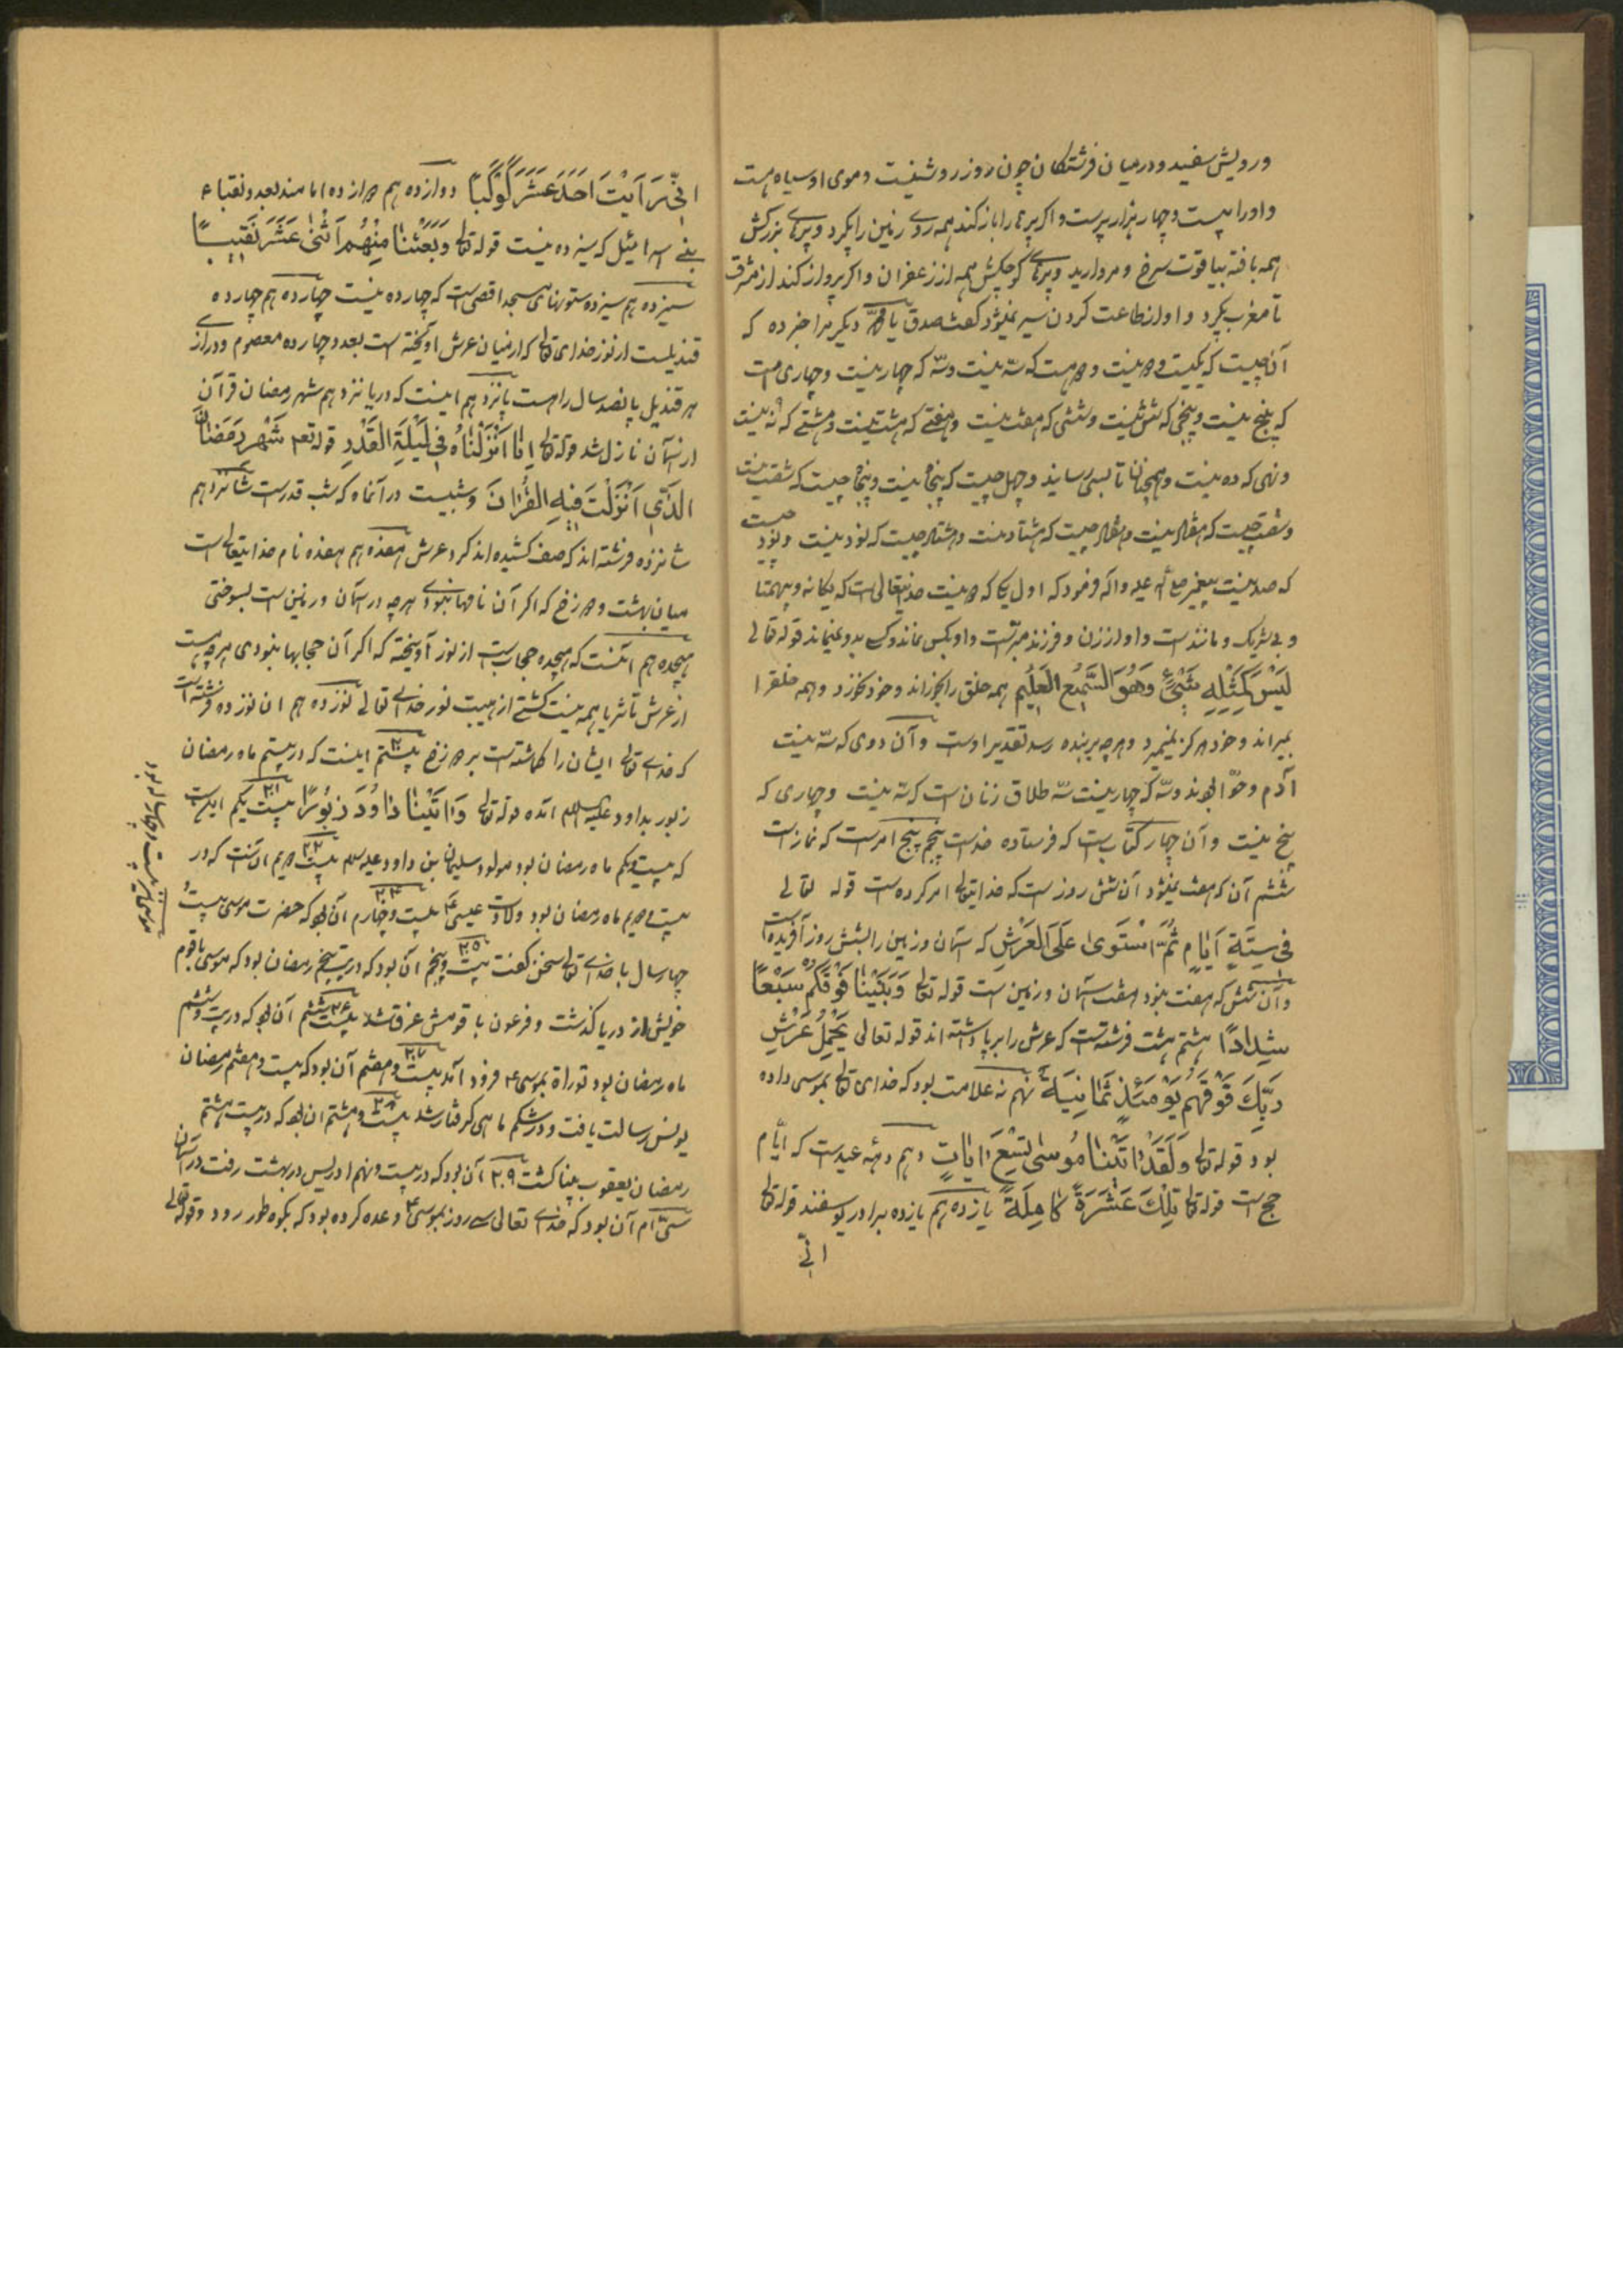 و رویش سفید و درمیان فرشتکان چون روز روشنیست و موی او سیاه است
و اورا بیست و چهار هزار پرست و اکر پرها را باز کند همه روی زمین را بکیرد و پرهای بزرکش
همه بافته بیاقوت سرخ و مروارید و پرهای کوچکش همه از زعفران و اکر پرواز کند از مشرق
تا مغرب بکیرد و او از طاعت کردن سیر نمیشود کفت صدق یا محمد دیکر مرا خبر ده که
آن چیست که یکیست و دو نیست و دو هست که سه نیست و سه که چهار نیست و چهاری هست
که پنج نیست و پنجی که شش نیست و ششی که هفت نیست و هفتی که هشت نیست و هشتی که نه نیست
و نهی که ده نیست و همچنان تا بسی رساند و چهل چیست که پنجاه نیست و پنجاه چیست که شصت نیست
و شصت چیست که هفتاد نیست و هفتاد چیست که هشتاد نیست و هشتاد چیست که نود نیست و نود چیست
که صد نیست پیغمبر صلی الله علیه و آله فرمود که اول یکی که دو نیست خدایتعالی است که یکانه و بیهمتا
و بی شریک و مانند است و او از زن و فرزند مبراست و او بکس نماند و کس بدو نماند قوله تعالی
لَیْسَ کَمِثْلِهِ شَیْءٌ وَهُوَ السَّمِیعُ الْعَلِیمِ همه خلق را بخوراند و خود نخورد و همه خلقرا
بمیراند و خود هرکز نمیرد و هرچه بر بنده رسد تقدیر اوست و آن دوی که سه نیست
آدم و حوّا بودند و سه که چهار نیست سه طلاق زنان است که سه نیست و چهاری که
پنج نیست و آن چهار کتابست که فرستاده خداست پنجم پنج امرست که نمازست
ششم آن که هفت نمیشود آن شش روزست که خدایتعالی امر کرده است قوله تعالی
فِی سِتَّةِ اَیَّامٍ ثُمَّ اسْتَوَیٰ عَلَی الْعَرْشِ که آسمان و زمین را بشش روز آفریده است
و آن شش که هفت نبود هفت آسمان و زمین است قوله تعالی وَبَنَیْنَا فَوْقَکُمْ سَبْعًا
شِدَادًا هشتم هشت فرشته است که عرش را بر پا داشته اند قوله تعالی یَحْمِلُ عَرْشَ
رَبِّکَ فَوْقَهُمْ یَوْمَئِذٍ ثَمَانِیَةٌ نهم نه علامت بود که خدای تعالی بموسی داده
بود قوله تعالی وَلَقَدْ اٰتَیْنَا مُوسٰی تِسْعَ اٰیَاتٍ دهم دهه عید ست که ایّام
حج است قوله تعالی تِلْکَ عَشَرَةٌ کَامِلَةٌ یازدهم یازده برادر یوسفند قوله تعالی
انّی
اِنِّی رَاَیْتُ اَحَدَ عَشَرَ کَوْکَبًا دوازدهم دوازده امامند بعدد نقباء
بنی اسرائیل که سیزده نیست قوله تعالی وَبَعَثْنَا مِنْهُمُ اثْنَیْ عَشَرَ نَقِیبًا
سیزدهم سیزده ستونهای مسجد اقصی است که چهارده نیست چهاردهم چهارده
قندیلست از نور خدای تعالی که از میان عرش آویخته است بعدد چهارده معصوم و درازی
هر قندیل پانصد سال راهست پانزدهم اینست که در پانزدهم شهر رمضان قرآن
از آسمان نازل شد قوله تعالی اِنَّا اَنْزَلْنَاهُ فِی لَیْلَةِ الْقَدْرِ قوله تعالی شَهْرُ رَمَضَانَ
الَّذِی اُنْزِلَتْ فِیهِ الْقُرْاٰنَ و شبیست در آنماه که شب قدرست شانزدهم
شانزده فرشته اند که صف کشیده اند کرد عرش هفدهم هفده نام خدایتعالی است
میان بهشت و دوزخ که اکر آن نامها نبودی هرچه در آسمان و زمین است بسوختی
هیجدهم آنست که هیجده حجابست از نور آویخته که اکر آن حجابها نبودی هرچه هست
از عرش تا ثریا همه نیست کشتی از هیبت نور خدای تعالی نوزدهم ان نوزده فرشته است
که خدای تعالی ایشان را کماشته است بر دوزخ بیستم اینست که در بیستم ماه رمضان
زبور بداود علیه السلام آمده قوله تعالی وَاٰتَیْنَا دَاوُدَ زَبُورًا بیست یکم اینست
که بیست و یکم ماه رمضان بود مولود سلیمان بن داود علیه السلام بیست دویم آنست که در
بیست و دویم ماه رمضان بود ولادت عیسی ع بیست و چهارم آن بود که حضرت موسی بیست
چهار سال با خدای تعالی سخن کفت بیست و پنجم آن بود که در بیست پنجم رمضان بود که موسی با قوم
خویش از دریا کذشت و فرعون با قومش غرق شد بیست و ششم آن بود که در بیست و ششم
ماه رمضان بود توراة بموسی ع فرود آمد بیست و هفتم آن بود که بیست و هفتم رمضان
یونس رسالت یافت و در شکم ماهی کرفتار شد بیست و هشتم ان بود که در بیست هشتم
رمضان یعقوب بینا کشت ۲۹ آن بود که در بیست و نهم ادریس در بهشت رفت در آسمان
سی ام آن بود که خدای تعالی سی روز بموسی ع وعده کرده بود که بکوه طور رود و قوله تعالی